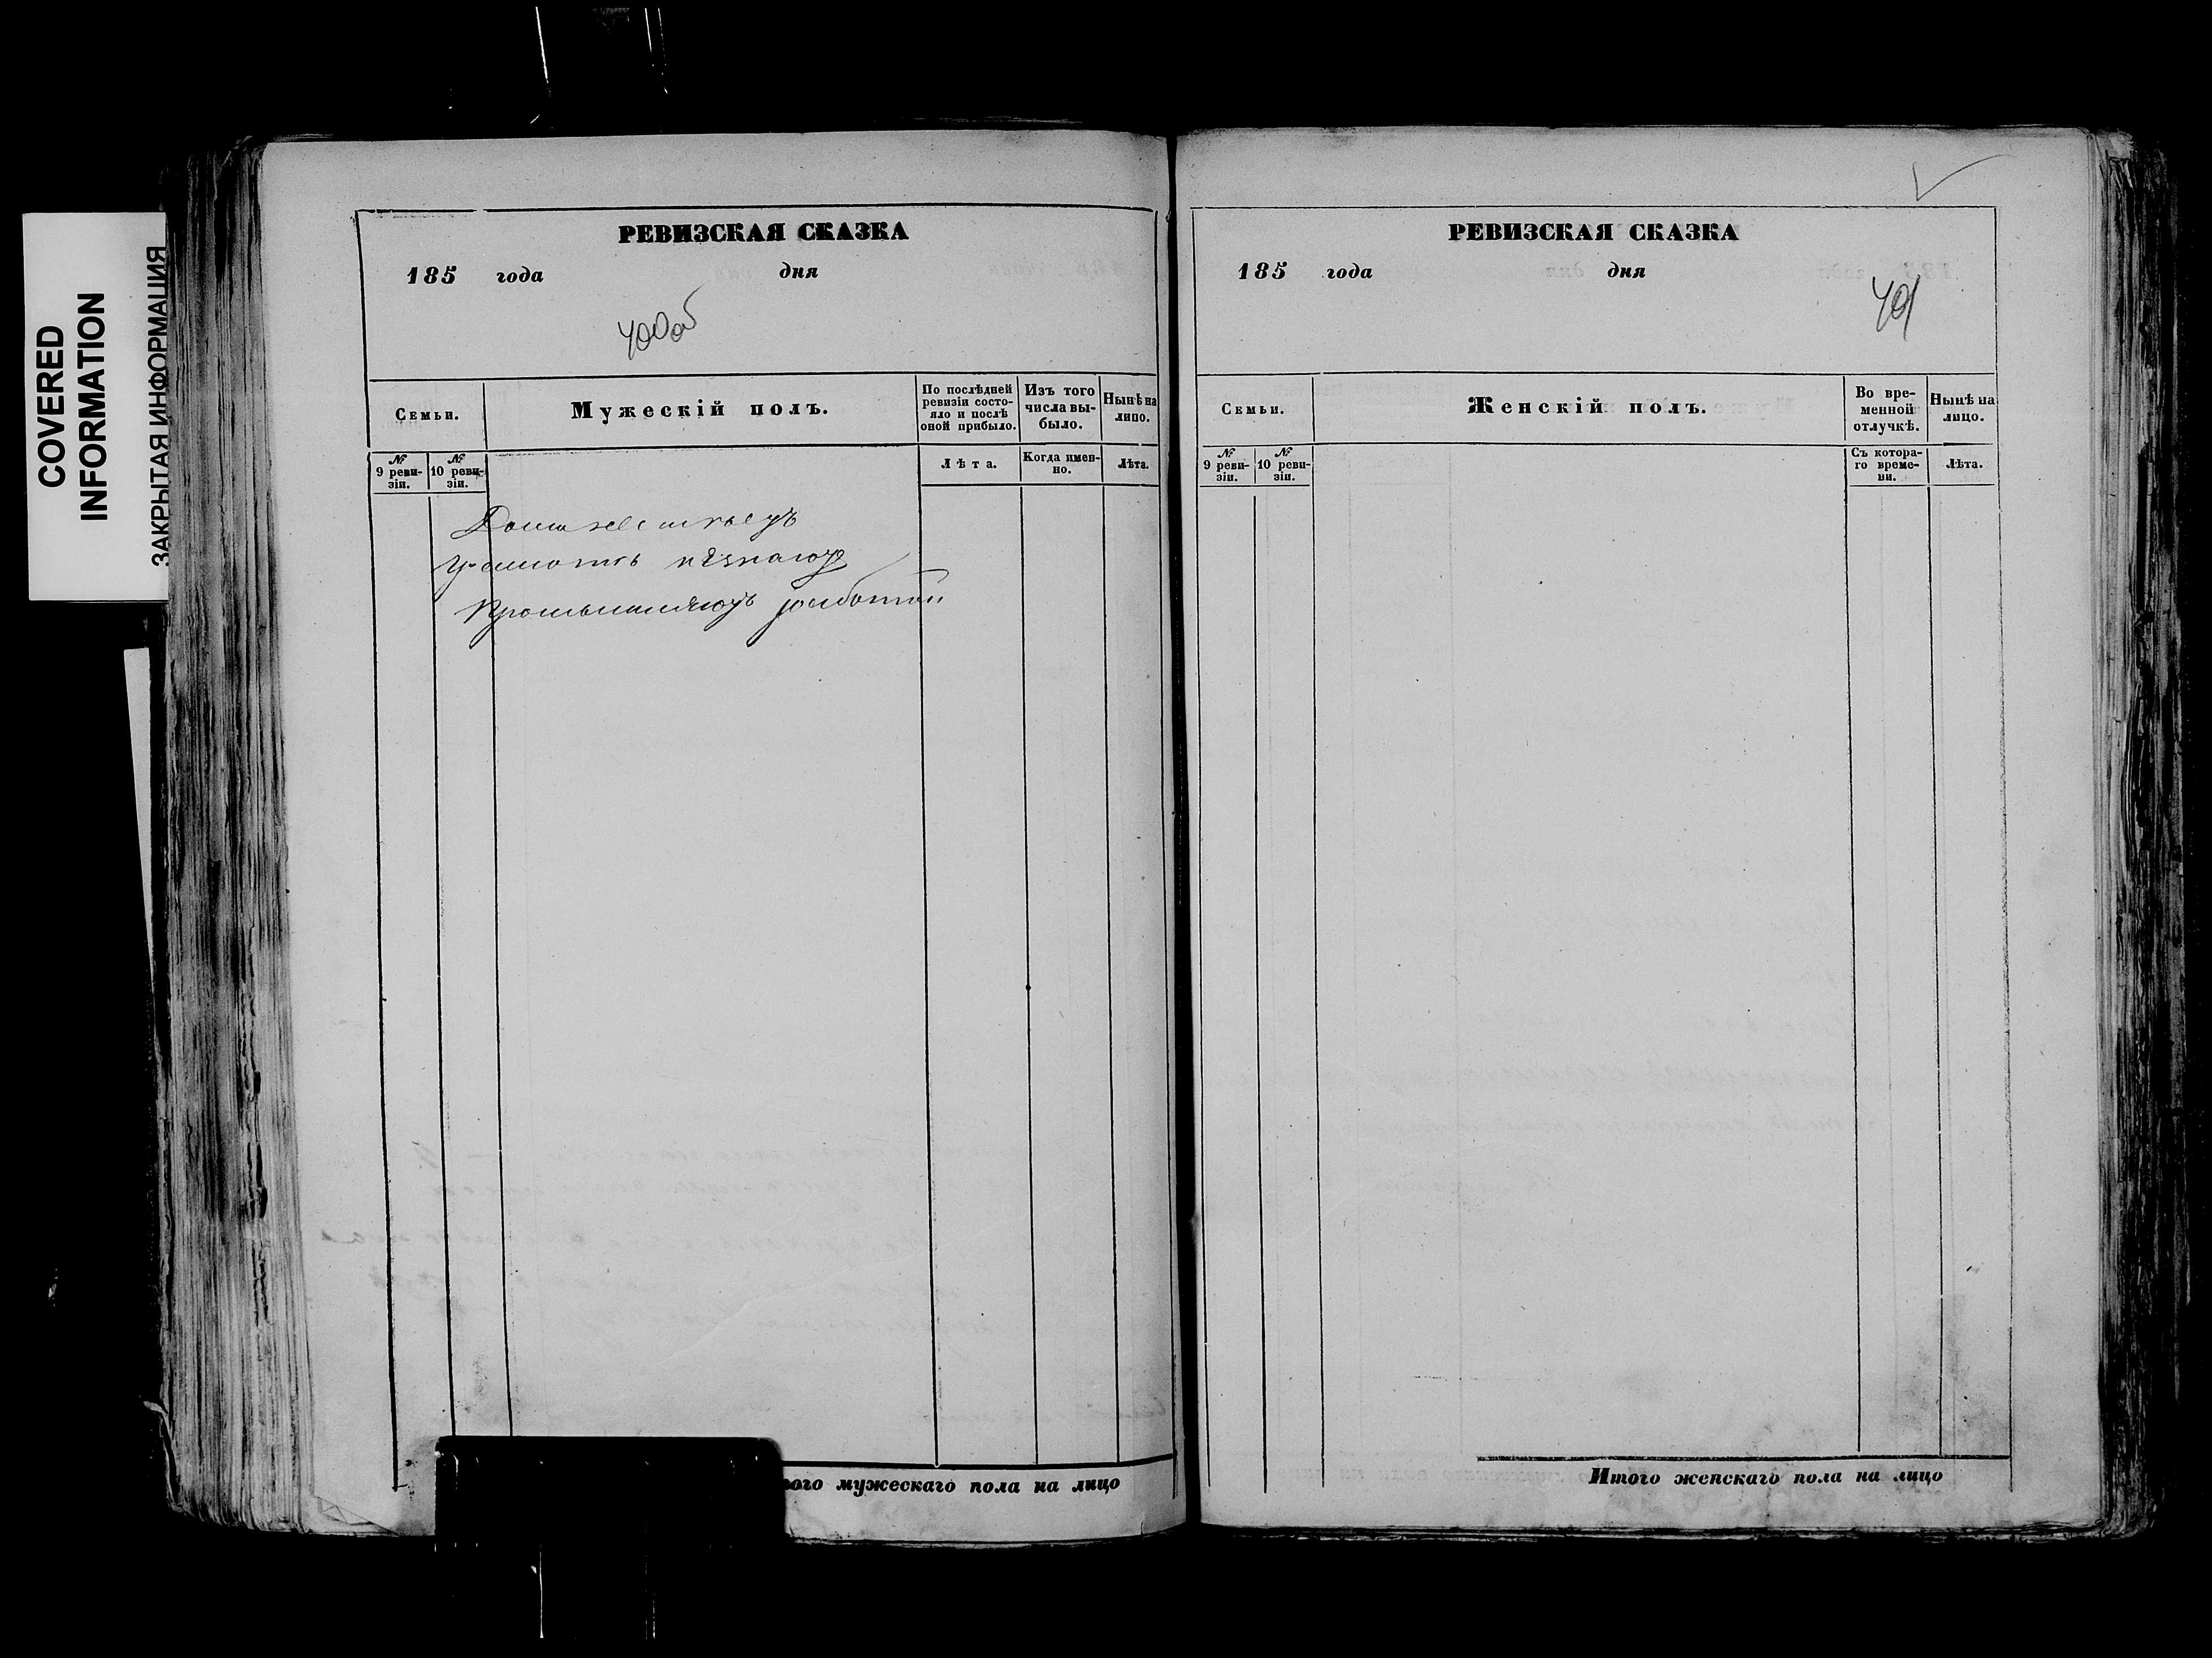 COVERED
INFORMATION
ЗАКРЫТАЯ ИНФОРМАЦИЯ
РЕВИЗСКАЯ СКАЗКА
185 года дня
400об
Семьи.
Мужескій полъ.
По послѣдней
ревизіи состо-
яло и послѣ
оной прибыло.
Изъ того
числа вы-
было.
Нынѣ на
лицо.
№
9 реви-
зіи.
№
10 реви-
зіи.
Лѣта.
Когда имен-
но.
Лѣта.
грамоть незнаютъ
Промышляютъ работой
ого мужескаго пола на лицо
РЕВИЗСКАЯ СКАЗКА
185 года дня
401
Семьи.
Женскій полъ.
Во вре-
менной
отлучкѣ.
Нынѣ на
лицо.
№
9 реви-
зіи.
№
10 реви-
зіи.
Съ котора-
го време-
ни.
Лѣта.
Итого женскаго пола на лицо